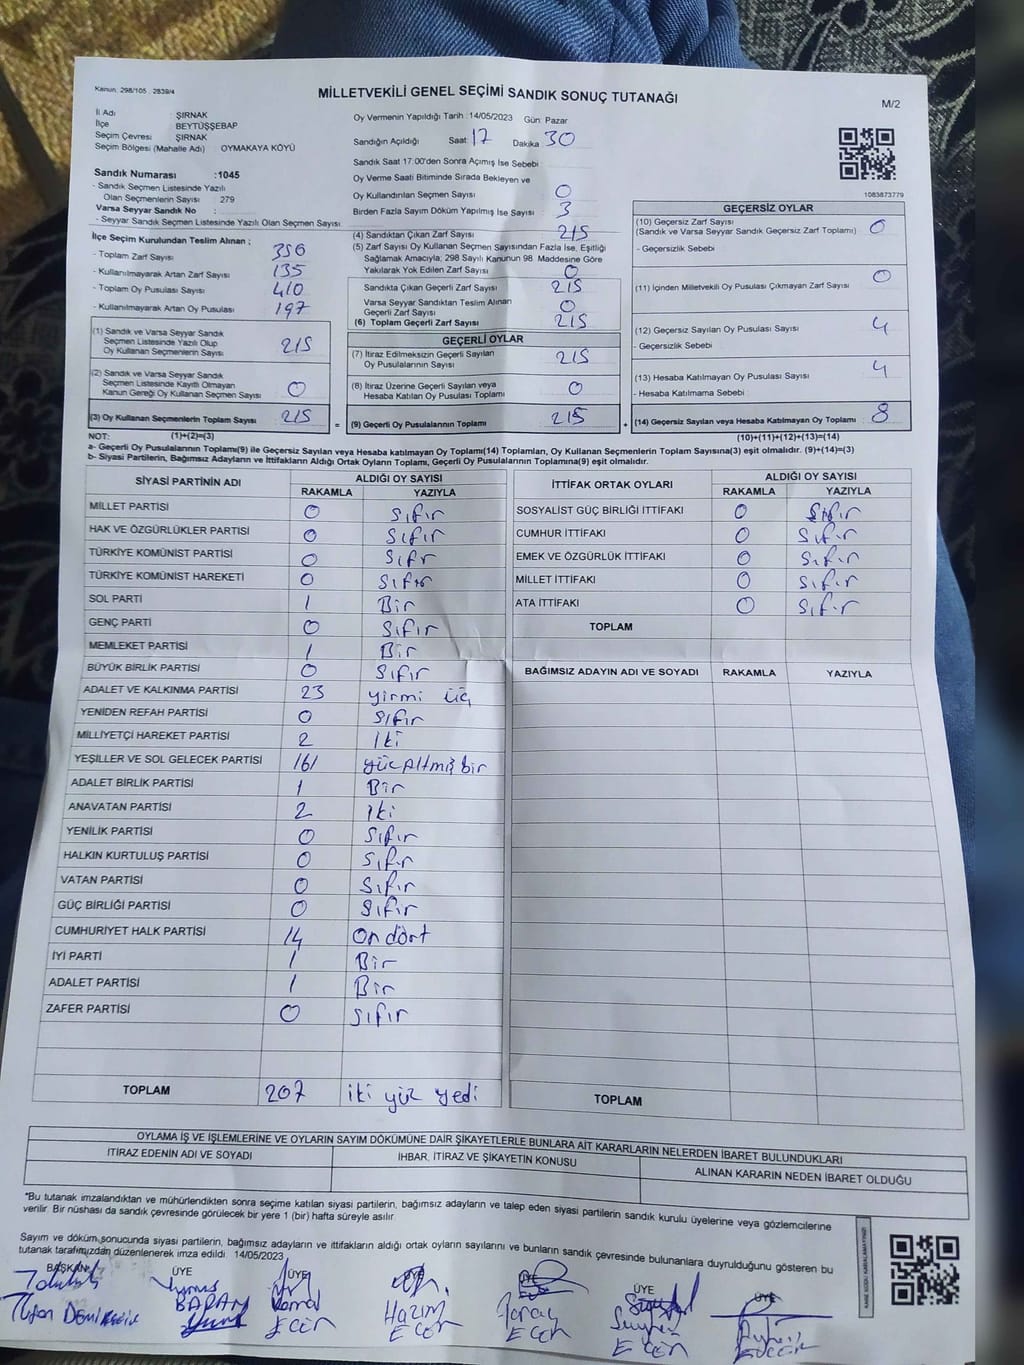 Kanun: 298/105 . 2839/4
MİLLETVEKİLİ GENEL SEÇİMİ SANDIK SONUÇ TUTANAĞI
M/2
İl Adı : ŞIRNAK
İlçe BEYTÜŞŞEBAP
Seçim Çevresi : ŞIRNAK
Seçim Bölgesi (Mahalle Adı) : OYMAKAYA KÖYÜ
Sandık Numarası :1045
- Sandık Seçmen Listesinde Yazılı
Olan Seçmenlerin Sayısı 279
Varsa Seyyar Sandık No :
- Seyyar Sandık Seçmen Listesinde Yazılı Olan Seçmen Sayısı
İlçe Seçim Kurulundan Teslim Alınan ;
- Toplam Zarf Sayısı 350
- Kullanılmayarak Artan Zarf Sayısı 135
- Toplam Oy Pusulası Sayısı 410
- Kullanılmayarak Artan Oy Pusulası 197
(1) Sandık ve Varsa Seyyar Sandık
Seçmen Listesinde Yazılı Olup
Oy Kullanan Seçmenlerin Sayısı 215
(2) Sandık ve Varsa Seyyar Sandık
Seçmen Listesinde Kayıtlı Olmayan
Kanun Gereği Oy Kullanan Seçmen Sayısı 0
(3) Oy Kullanan Seçmenlerin Toplam Sayısı 215
Oy Vermenin Yapıldığı Tarih : 14/05/2023 Gün: Pazar
Sandığın Açıldığı Saat 17 Dakika 30
Sandık Saat 17:00'den Sonra Açımış İse Sebebi
Oy Verme Saati Bitiminde Sırada Bekleyen ve
Oy Kullandırılan Seçmen Sayısı 0
Birden Fazla Sayım Döküm Yapılmış İse Sayısı 3
(4) Sandıktan Çıkan Zarf Sayısı 215
(5) Zarf Sayısı Oy Kullanan Seçmen Sayısından Fazla İse, Eşitliği
Sağlamak Amacıyla; 298 Sayılı Kanunun 98. Maddesine Göre
Yakılarak Yok Edilen Zarf Sayısı 0
Sandıkta Çıkan Geçerli Zarf Sayısı 215
Varsa Seyyar Sandıktan Teslim Alınan
Geçerli Zarf Sayısı 0
(6) Toplam Geçerli Zarf Sayısı 215
GEÇERLİ OYLAR
(7) İtiraz Edilmeksizin Geçerli Sayılan
Oy Pusulalarının Sayısı 215
(8) İtiraz Üzerine Geçerli Sayılan veya
Hesaba Katılan Oy Pusulaları Toplamı 0
= (9) Geçerli Oy Pusulalarının Toplamı 215 +
1083873779
GEÇERSİZ OYLAR
(10) Geçersiz Zarf Sayısı
(Sandık ve Varsa Seyyar Sandık Geçersiz Zarf Toplamı) 0
- Geçersizlik Sebebi
(11) İçinden Milletvekili Oy Pusulası Çıkmayan Zarf Sayısı 0
(12) Geçersiz Sayılan Oy Pusulası Sayısı 4
- Geçersizlik Sebebi
(13) Hesaba Katılmayan Oy Pusulası Sayısı 4
- Hesaba Katılmama Sebebi
(14) Geçersiz Sayılan veya Hesaba Katılmayan Oy Toplamı 8
NOT: (1)+(2)=(3) (10)+(11)+(12)+(13)=(14)
a- Geçerli Oy Pusulalarının Toplamı(9) ile Geçersiz Sayılan veya Hesaba katılmayan Oy Toplamı(14) Toplamları, Oy Kullanan Seçmenlerin Toplam Sayısına(3) eşit olmalıdır. (9)+(14)=(3)
b- Siyasi Partilerin, Bağımsız Adayların ve İttifakların Aldığı Ortak Oyların Toplamı, Geçerli Oy Pusulalarının Toplamına(9) eşit olmalıdır.
SİYASİ PARTİNİN ADI ALDIĞI OY SAYISI
RAKAMLA YAZIYLA
MİLLET PARTİSİ 0 Sıfır
HAK VE ÖZGÜRLÜKLER PARTİSİ 0 Sıfır
TÜRKİYE KOMÜNİST PARTİSİ 0 Sıfr
TÜRKİYE KOMÜNİST HAREKETİ 0 Sıfır
SOL PARTİ 1 Bir
GENÇ PARTİ 0 Sıfır
MEMLEKET PARTİSİ 1 Bir
BÜYÜK BİRLİK PARTİSİ 0 Sıfır
ADALET VE KALKINMA PARTİSİ 23 yirmi üç
YENİDEN REFAH PARTİSİ 0 Sıfır
MİLLİYETÇİ HAREKET PARTİSİ 2 İki
YEŞİLLER VE SOL GELECEK PARTİSİ 161 yüzAltmışbir
ADALET BİRLİK PARTİSİ 1 Bir
ANAVATAN PARTİSİ 2 İki
YENİLİK PARTİSİ 0 Sıfır
HALKIN KURTULUŞ PARTİSİ 0 Sıfır
VATAN PARTİSİ 0 Sıfır
GÜÇ BİRLİĞİ PARTİSİ 0 Sıfır
CUMHURİYET HALK PARTİSİ 14 On dört
İYİ PARTİ 1 Bir
ADALET PARTİSİ 1 Bir
ZAFER PARTİSİ 0 Sıfır
TOPLAM 207 iki yüz yedi
İTTİFAK ORTAK OYLARI ALDIĞI OY SAYISI
RAKAMLA YAZIYLA
SOSYALİST GÜÇ BİRLİĞİ İTTİFAKI 0 Sıfır
CUMHUR İTTİFAKI 0 Sıfır
EMEK VE ÖZGÜRLÜK İTTİFAKI 0 Sıfır
MİLLET İTTİFAKI 0 Sıfır
ATA İTTİFAKI 0 Sıfır
TOPLAM
BAĞIMSIZ ADAYIN ADI VE SOYADI RAKAMLA YAZIYLA
TOPLAM
OYLAMA İŞ VE İŞLEMLERİNE VE OYLARIN SAYIM DÖKÜMÜNE DAİR ŞİKAYETLERLE BUNLARA AİT KARARLARIN NELERDEN İBARET BULUNDUKLARI
İTİRAZ EDENİN ADI VE SOYADI İHBAR, İTİRAZ VE ŞİKAYETİN KONUSU ALINAN KARARIN NEDEN İBARET OLDUĞU
*Bu tutanak imzalandıktan ve mühürlendikten sonra seçime katılan siyasi partilerin, bağımsız adayların ve talep eden siyasi partilerin sandık kurulu üyelerine veya gözlemcilerine
verilir. Bir nüshası da sandık çevresinde görülecek bir yere 1 (bir) hafta süreyle asılır
Sayım ve döküm sonucunda siyasi partilerin, bağımsız adayların ve ittifakların aldığı ortak oyların sayılarını ve bunların sandık çevresinde bulunanlara duyrulduğunu gösteren bu
tutanak tarafımızdan düzenlenerek imza edildi. 14/05/2023
BAŞKAN ÜYE ÜYE ÜYE ÜYE ÜYE ÜYE
BARAN Kemal Hazım
ECER ECER ECER ECER